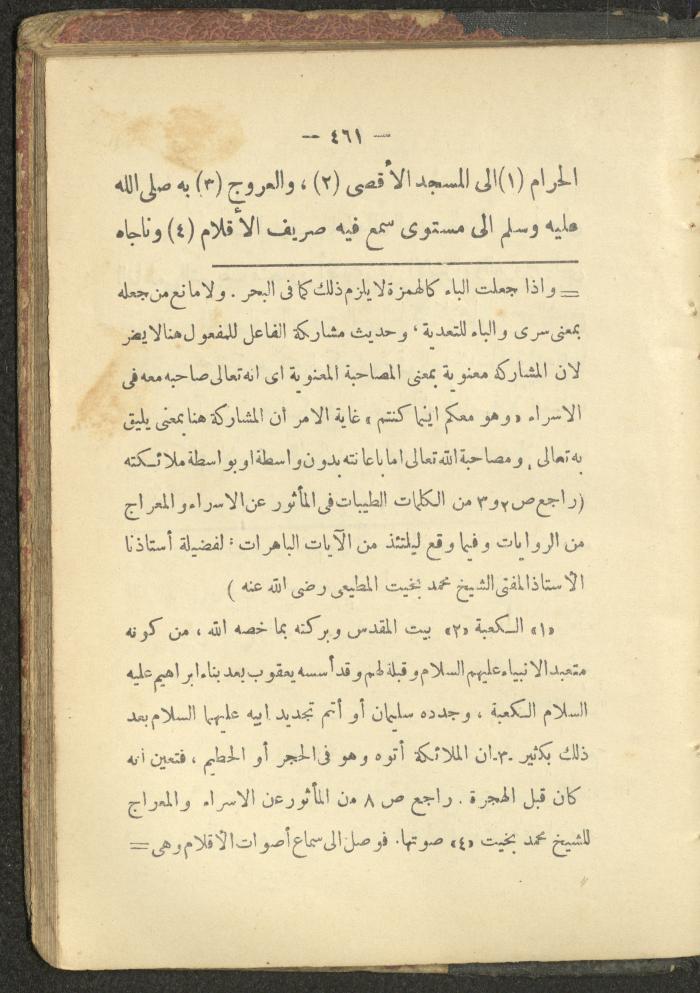 — ٤٦١ —
الحرام (١) الى المسجد الأقصى (٢) ، والعروج (٣) به صلى الله
عليه وسلم الى مستوى سمع فيه صريف الأقلام (٤) وناجاه
= واذا جعلت الباء كالهمزة لا يلزم ذلك كما فى البحر . ولا مانع من جعله
بمعنى سرى والباء للتعدية ، وحديث مشاركة الفاعل للمفعول هنا لا يضر
لان المشاركة معنوية بمعنى المصاحبة المعنوية اى انه تعالى صاحبه معه فى
الاسراء « وهو معكم اينما كنتم » غاية الامر أن المشاركة هنا بمعنى يليق
به تعالى ، ومصاحبة الله تعالى اما باعانته بدون واسطة او بواسطة ملائكته
(راجع ص ٢ و ٣ من الكلمات الطيبات فى المأثور عن الاسراء والمعراج
من الروايات وفيما وقع ليلتئذ من الآيات الباهرات : لفضيلة أستاذنا
الأستاذ المفتى الشيخ محمد بخيت المطيعى رضى الله عنه )
«١» الكعبة «٢» بيت المقدس وبركته بما خصه الله ، من كونه
متعبد الانبياء عليهم السلام وقبلة لهم وقد أسسه يعقوب بعد بناء ابراهيم عليه
السلام الكعبة ، وجدده سليمان أو أتم تجديد ابيه عليهما السلام بعد
ذلك بكثير -٣- ان الملائكة أتوه وهو فى الحجر أو الحطيم ، فتعين انه
كان قبل الهجرة . راجع ص ٨ من المأثور عن الاسراء والمعراج
للشيخ محمد بخيت «٤» صوتها. فوصل الى سماع أصوات الأقلام وهى =